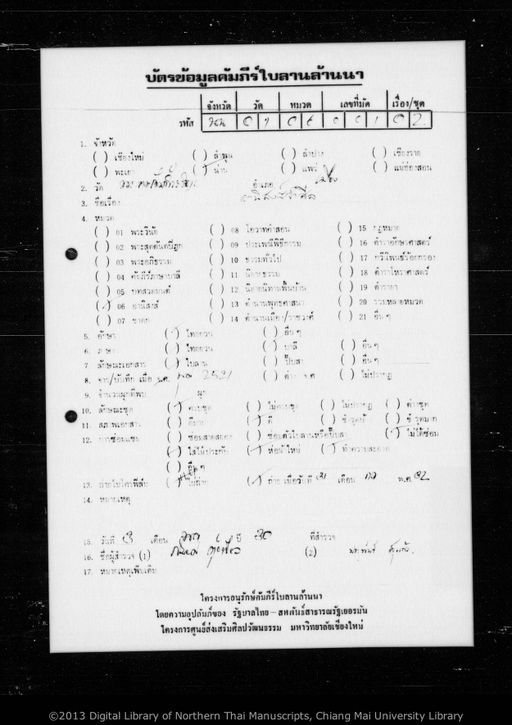 บัตรข้อมูลคัมภีร์ใบลานล้านนา
จังหวัด วัด หมวด เลขที่มัด เรื่อง/ชุด
รหัส นน 0 1 0 6 0 0 1 0 2
1. จังหวัด
( ) เชียงใหม่ ( ) ลำพูน ( ) ลำปาง ( ) เชียงราย
( ) พะเยา (/) น่าน ( ) แพร่ ( ) แม่ฮ่องสอน
2. วัด อำเภอ เมือง
3. ชื่อเรื่อง
4. หมวด
( ) 01 พระวินัย ( ) 08 โอวาทคำสอน ( ) 15 กฎหมาย
( ) 02 พระสุตตันตปิฎก ( ) 09 ประเพณีพิธีกรรม ( ) 16 ตำราอักษรศาสตร์
( ) 03 พระอภิธรรม ( ) 10 ธรรมทั่วไป ( ) 17 กวีนิพนธ์ร้อยกรอง
( ) 04 คัมภีร์ภาษาบาลี ( ) 11 นิยายธรรม ( ) 18 ตำราโหราศาสตร์
( ) 05 บทสวดมนต์ ( ) 12 นิยายนิทานพื้นบ้าน ( ) 19 ตำรายา
(/) 06 อานิสงส์ ( ) 13 ตำนานพุทธศาสนา ( ) 20 รวมหลายหมวด
( ) 07 ชาดก ( ) 14 ตำนานเมือง/ราชวงศ์ ( ) 21 อื่นๆ
5. อักษร (/) ไทยยวน ( ) อื่นๆ
6. ภาษา ( ) ไทยยวน ( ) บาลี ( ) อื่นๆ
7. ลักษณะเอกสาร (/) ใบลาน ( ) ปั๊บสา ( ) อื่นๆ
8. จาร/บันทึก เมื่อ พ.ศ. 2521 ( ) จ.ศ. ( ) ไม่ปรากฏ
9. จำนวนผูกที่พบ ผูก
10. ลักษณะชุด (/) ครบชุด ( ) ไม่ครบชุด ( ) ไม่ปรากฏ ( ) ต่างชุด
11. สภาพเอกสาร ( ) ดีมาก (/) ดี ( ) ชำรุด ( ) ชำรุดมาก
12. การซ่อมแซม ( ) ซ่อมสายสยอง ( ) ซ่อมตัวใบลานหรือปั๊บสา (/) ไม่ได้ซ่อม
(/) ใส่ไม้ประกับ (/) ห่อผ้าใหม่ (/) ทำความสะอาด
( ) อื่นๆ
13. ถ่ายไมโครฟิล์ม ( ) ไม่ถ่าย (/) ถ่าย เมื่อวันที่ เดือน พ.ศ. 32
14. หมายเหตุ
15. วันที่ 3 เดือน ปี 30 ที่สำรวจ
16. ชื่อผู้สำรวจ (1) (2)
17. หมายเหตุเพิ่มเติม
โครงการอนุรักษ์คัมภีร์ใบลานล้านนา
โดยความอุปถัมภ์ของ รัฐบาลไทย - สหพันธ์สาธารณรัฐเยอรมัน
โครงการศูนย์ส่งเสริมศิลปวัฒนธรรม มหาวิทยาลัยเชียงใหม่
©2013 Digital Library of Northern Thai Manuscripts, Chiang Mai University Library